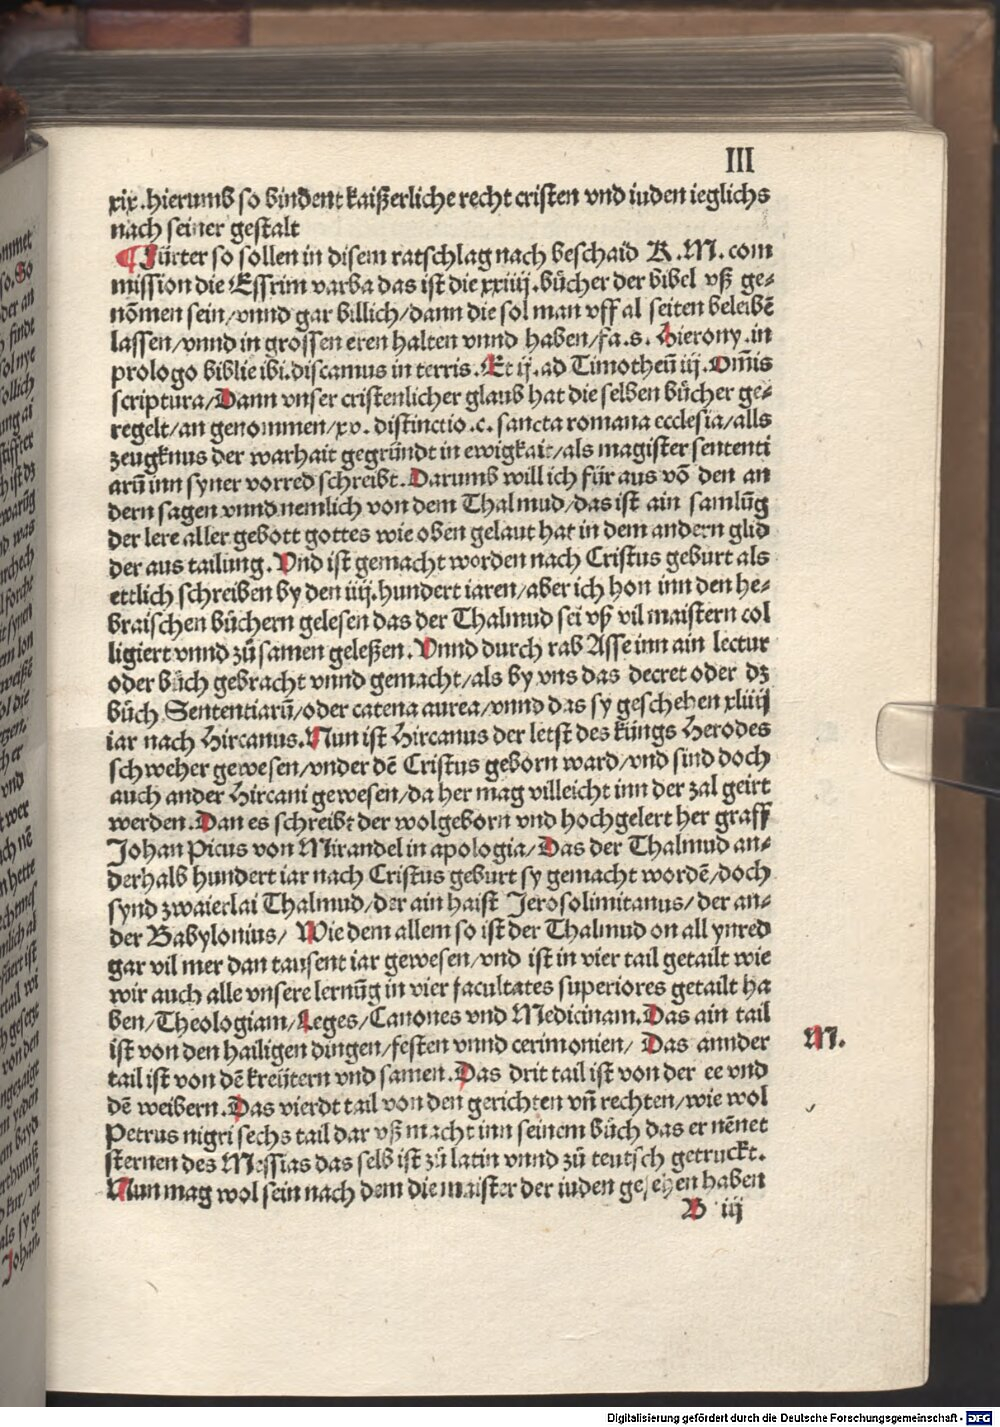 III
xix. hierumb so bindent kaißerliche recht cristen vnd iuden ieglichs
nach seiner gestalt
¶Fürter so sollen in disem ratschlag nach beschaid K. M. com
mission die Essrim varba das ist die xxiiij. bücher der bibel vß ge⸗
nōmen sein/vnnd gar billich/dann die sol man vff al seiten beleibē
lassen/vnnd in grossen eren halten vnnd haben/fa. s. Hierony. in
prologo biblie ibi. discamus in terris. Et ij. ad Timotheū iij. Om̄is
scriptura/Dann vnser cristenlicher glaub hat die selben bücher ge⸗
regelt/an genommen/xv. distinctio .c. sancta romana ecclesia/alls
zeugknus der warhait gegründt in ewigkait/als magister sententi
arū inn syner vorred schreibt. Darumb will ich für aus vō den an
dern sagen vnnd nemlich von dem Thalmud/das ist ain samlūg
der lere aller gebott gottes wie oben gelaut hat in dem andern glid
der aus tailung. Vnd ist gemacht worden nach Cristus geburt als
ettlich schreiben by den iiij. hundert iaren/aber ich hon inn den he⸗
braischen büchern gelesen das der Thalmud sei vß vil maistern col
ligiert vnnd zů samen geleßen. Vnnd durch rab Asse inn ain lectur
oder bůch gebracht vnnd gemacht/als by vns das decret oder dz
bůch Sententiarū/oder catena aurea/vnnd das sy geschehen xliiij
iar nach Hircanus. Nun ist Hircanus der letst des küngs Herodes
schweher gewesen/vnder dē Cristus geborn ward/vnd sind doch
auch ander Hircani gewesen/da her mag villeicht inn der zal geirt
werden. Dan es schreibt der wolgeborn vnd hochgelert her graff
Johan Picus von Mirandel in apologia/Das der Thalmud an⸗
derhalb hundert iar nach Cristus geburt sy gemacht wordē/doch
synd zwaierlai Thalmud/der ain haist Jerosolimitanus/der an⸗
der Babylonius/ Wie dem allem so ist der Thalmud on all ynred
gar vil mer dan tausent iar gewesen/vnd ist in vier tail getailt wie
wir auch alle vnsere lernūg in vier facultates superiores getailt ha
ben/Theologiam/Leges/Canones vnd Medicinam. Das ain tail
ist von den hailigen dingen/festen vnnd cerimonien/ Das annder
M.
tail ist von dē kreütern vnd samen. Das drit tail ist von der ee vnd
dē weibern. Das vierdt tail von den gerichten vn̄ rechten/wie wol
Petrus nigri sechs tail dar vß macht inn seinem bůch das er nēnet
sternen des Messias das selb ist zů latin vnnd zů teutsch getruckt.
Nun mag wol sein nach dem die maister der iuden gesehen haben
B iij
Digitalisierung gefördert durch die Deutsche Forschungsgemeinschaft - DFG